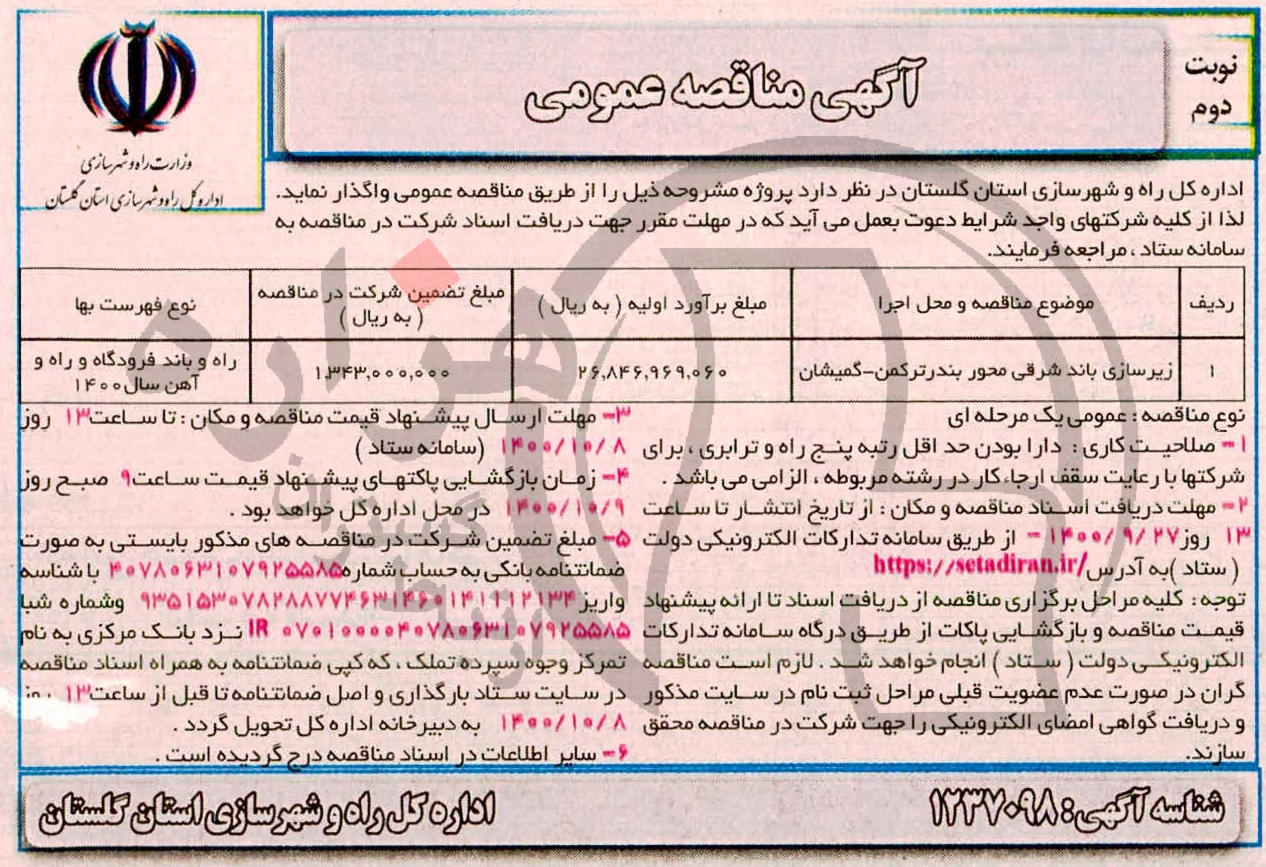 نوبت
دوم
آگهی مناقصه عمومی
وزارت راه و شهرسازی
اداره کل راه و شهرسازی استان گلستان
اداره کل راه و شهرسازی استان گلستان در نظر دارد پروژه مشروحه ذیل را از طریق مناقصه عمومی واگذار نماید.
لذا از کلیه شرکتهای واجد شرایط دعوت بعمل می آید که در مهلت مقرر جهت دریافت اسناد شرکت در مناقصه به
سامانه ستاد ، مراجعه فرمایند.
ردیف
موضوع مناقصه و محل اجرا
مبلغ برآورد اولیه ( به ریال )
مبلغ تضمین شرکت در مناقصه
( به ریال )
نوع فهرست بها
۱
زیرسازی باند شرقی محور بندرترکمن-گمیشان
۲۶,۸۴۶,۹۶۹,۰۶۰
۱,۳۴۳,۰۰۰,۰۰۰
راه و باند فرودگاه و راه و
آهن سال ۱۴۰۰
نوع مناقصه : عمومی یک مرحله ای
۱- صلاحیت کاری : دارا بودن حد اقل رتبه پنج راه و ترابری ، برای
شرکتها با رعایت سقف ارجاء کار در رشته مربوطه ، الزامی می باشد .
۲- مهلت دریافت اسناد مناقصه و مکان : از تاریخ انتشار تا ساعت
۱۳ روز ۱۴۰۰/۹/۲۷ - از طریق سامانه تدارکات الکترونیکی دولت
( ستاد ) به آدرس https://setadiran.ir/
توجه : کلیه مراحل برگزاری مناقصه از دریافت اسناد تا ارائه پیشنهاد
قیمت مناقصه و بازگشایی پاکات از طریق درگاه سامانه تدارکات
الکترونیکی دولت ( ستاد ) انجام خواهد شد . لازم است مناقصه
گران در صورت عدم عضویت قبلی مراحل ثبت نام در سایت مذکور
و دریافت گواهی امضای الکترونیکی را جهت شرکت در مناقصه محقق
سازند.
۳- مهلت ارسال پیشنهاد قیمت مناقصه و مکان : تا ساعت ۱۳ روز
۱۴۰۰/۱۰/۸ (سامانه ستاد )
۴- زمان بازگشایی پاکتهای پیشنهاد قیمت ساعت ۹ صبح روز
۱۴۰۰/۱۰/۹ در محل اداره کل خواهد بود .
۵- مبلغ تضمین شرکت در مناقصه های مذکور بایستی به صورت
ضمانتنامه بانکی به حساب شماره ۴۰۷۸۰۶۳۱۰۷۹۲۵۵۸۵ با شناسه
واریز ۹۳۵۱۵۳۰۷۸۲۸۸۷۷۴۶۳۱۴۶۰۱۴۱۱۱۲۱۳۴ وشماره شبا
IR ۰۷۰۱۰۰۰۰۴۰۷۸۰۶۳۱۰۷۹۲۵۵۸۵ نزد بانک مرکزی به نام
تمرکز وجوه سپرده تملک ، که کپی ضمانتنامه به همراه اسناد مناقصه
در سایت ستاد بارگذاری و اصل ضمانتنامه تا قبل از ساعت ۱۳ روز
۱۴۰۰/۱۰/۸ به دبیرخانه اداره کل تحویل گردد .
۶- سایر اطلاعات در اسناد مناقصه درج گردیده است .
شناسه آگهی : ۱۲۳۷۰۹۸
اداره کل راه و شهرسازی استان گلستان
هزاره